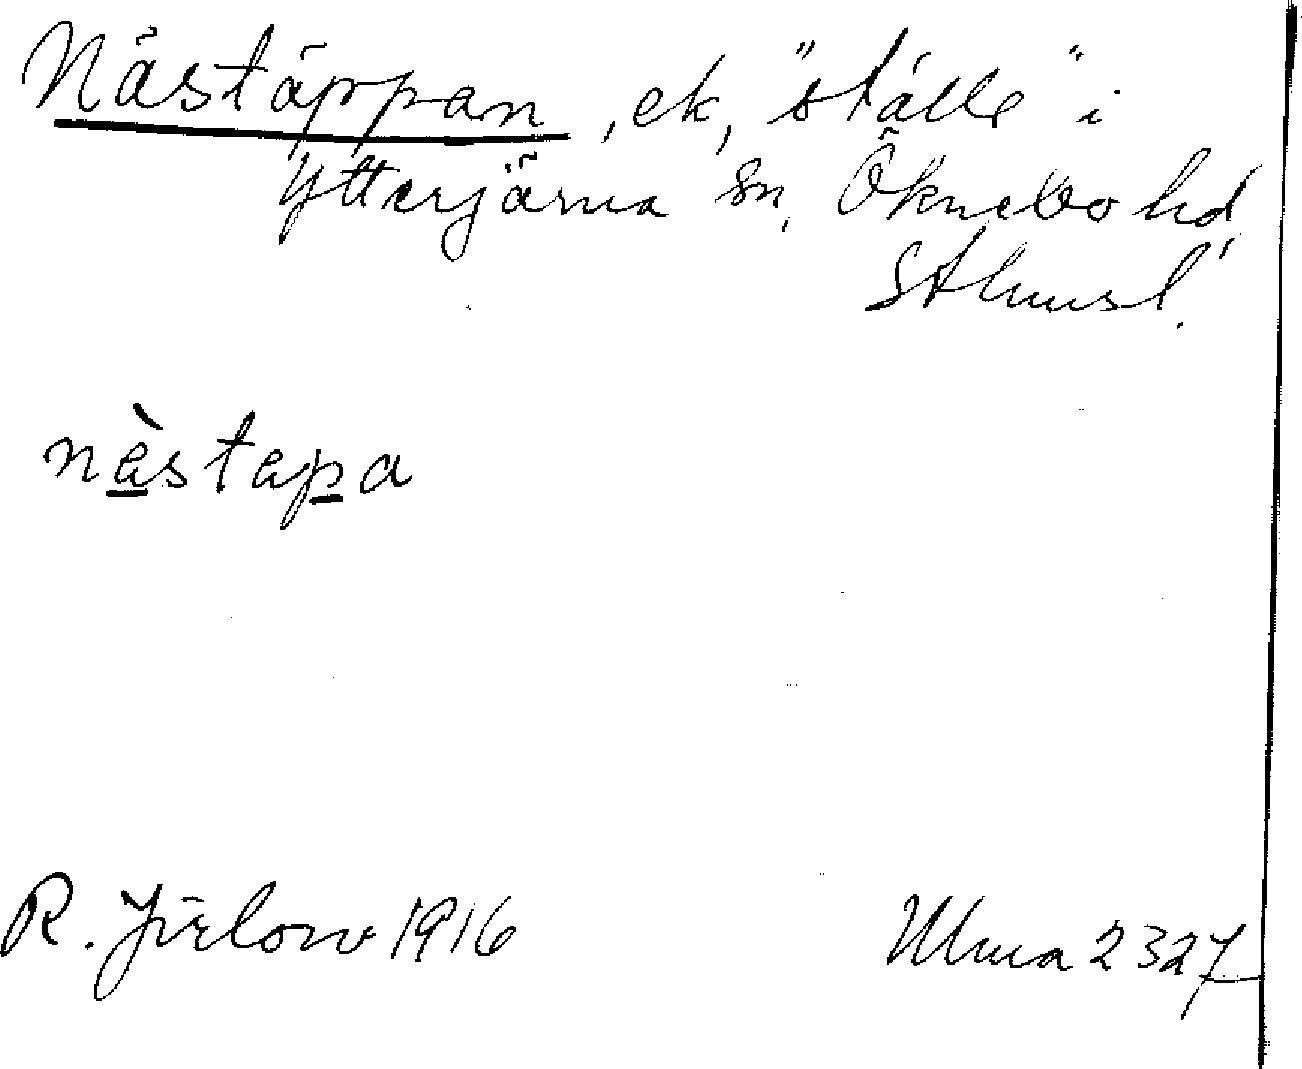 Nästäppan, ek, "ställe" i
Ytterjärna sn, Öknebo hd,
Sthmsl.
nèstepa
R. Jirlow 1916
Ulma 2327